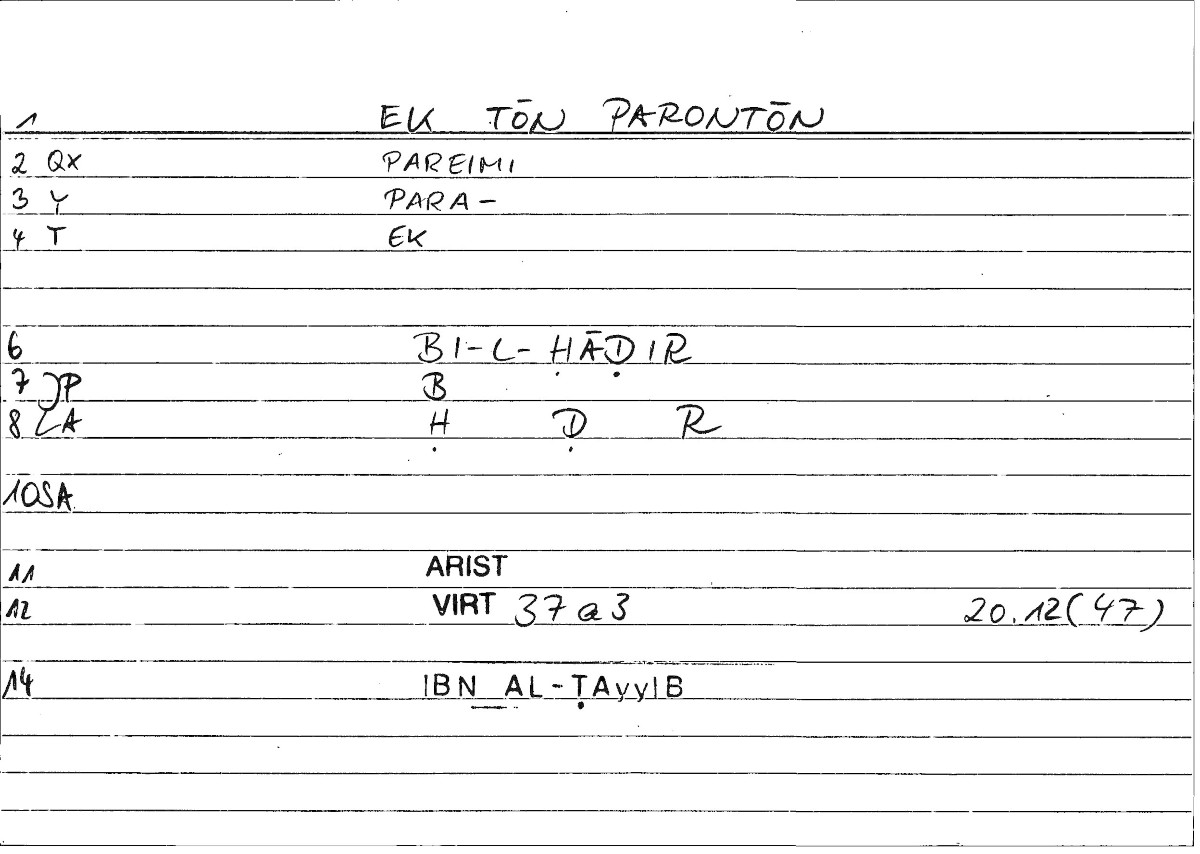 1 EK TŌN PARONTŌN
2 QX PAREIMI
3 Y PARA-
4 T EK
6 BI-L-ḤĀḌIR
7 JP B
8 LA Ḥ Ḍ R
10 SA
11 ARIST
12 VIRT 37a3 20.12(47)
14 IBN AL-ṬAyyIB